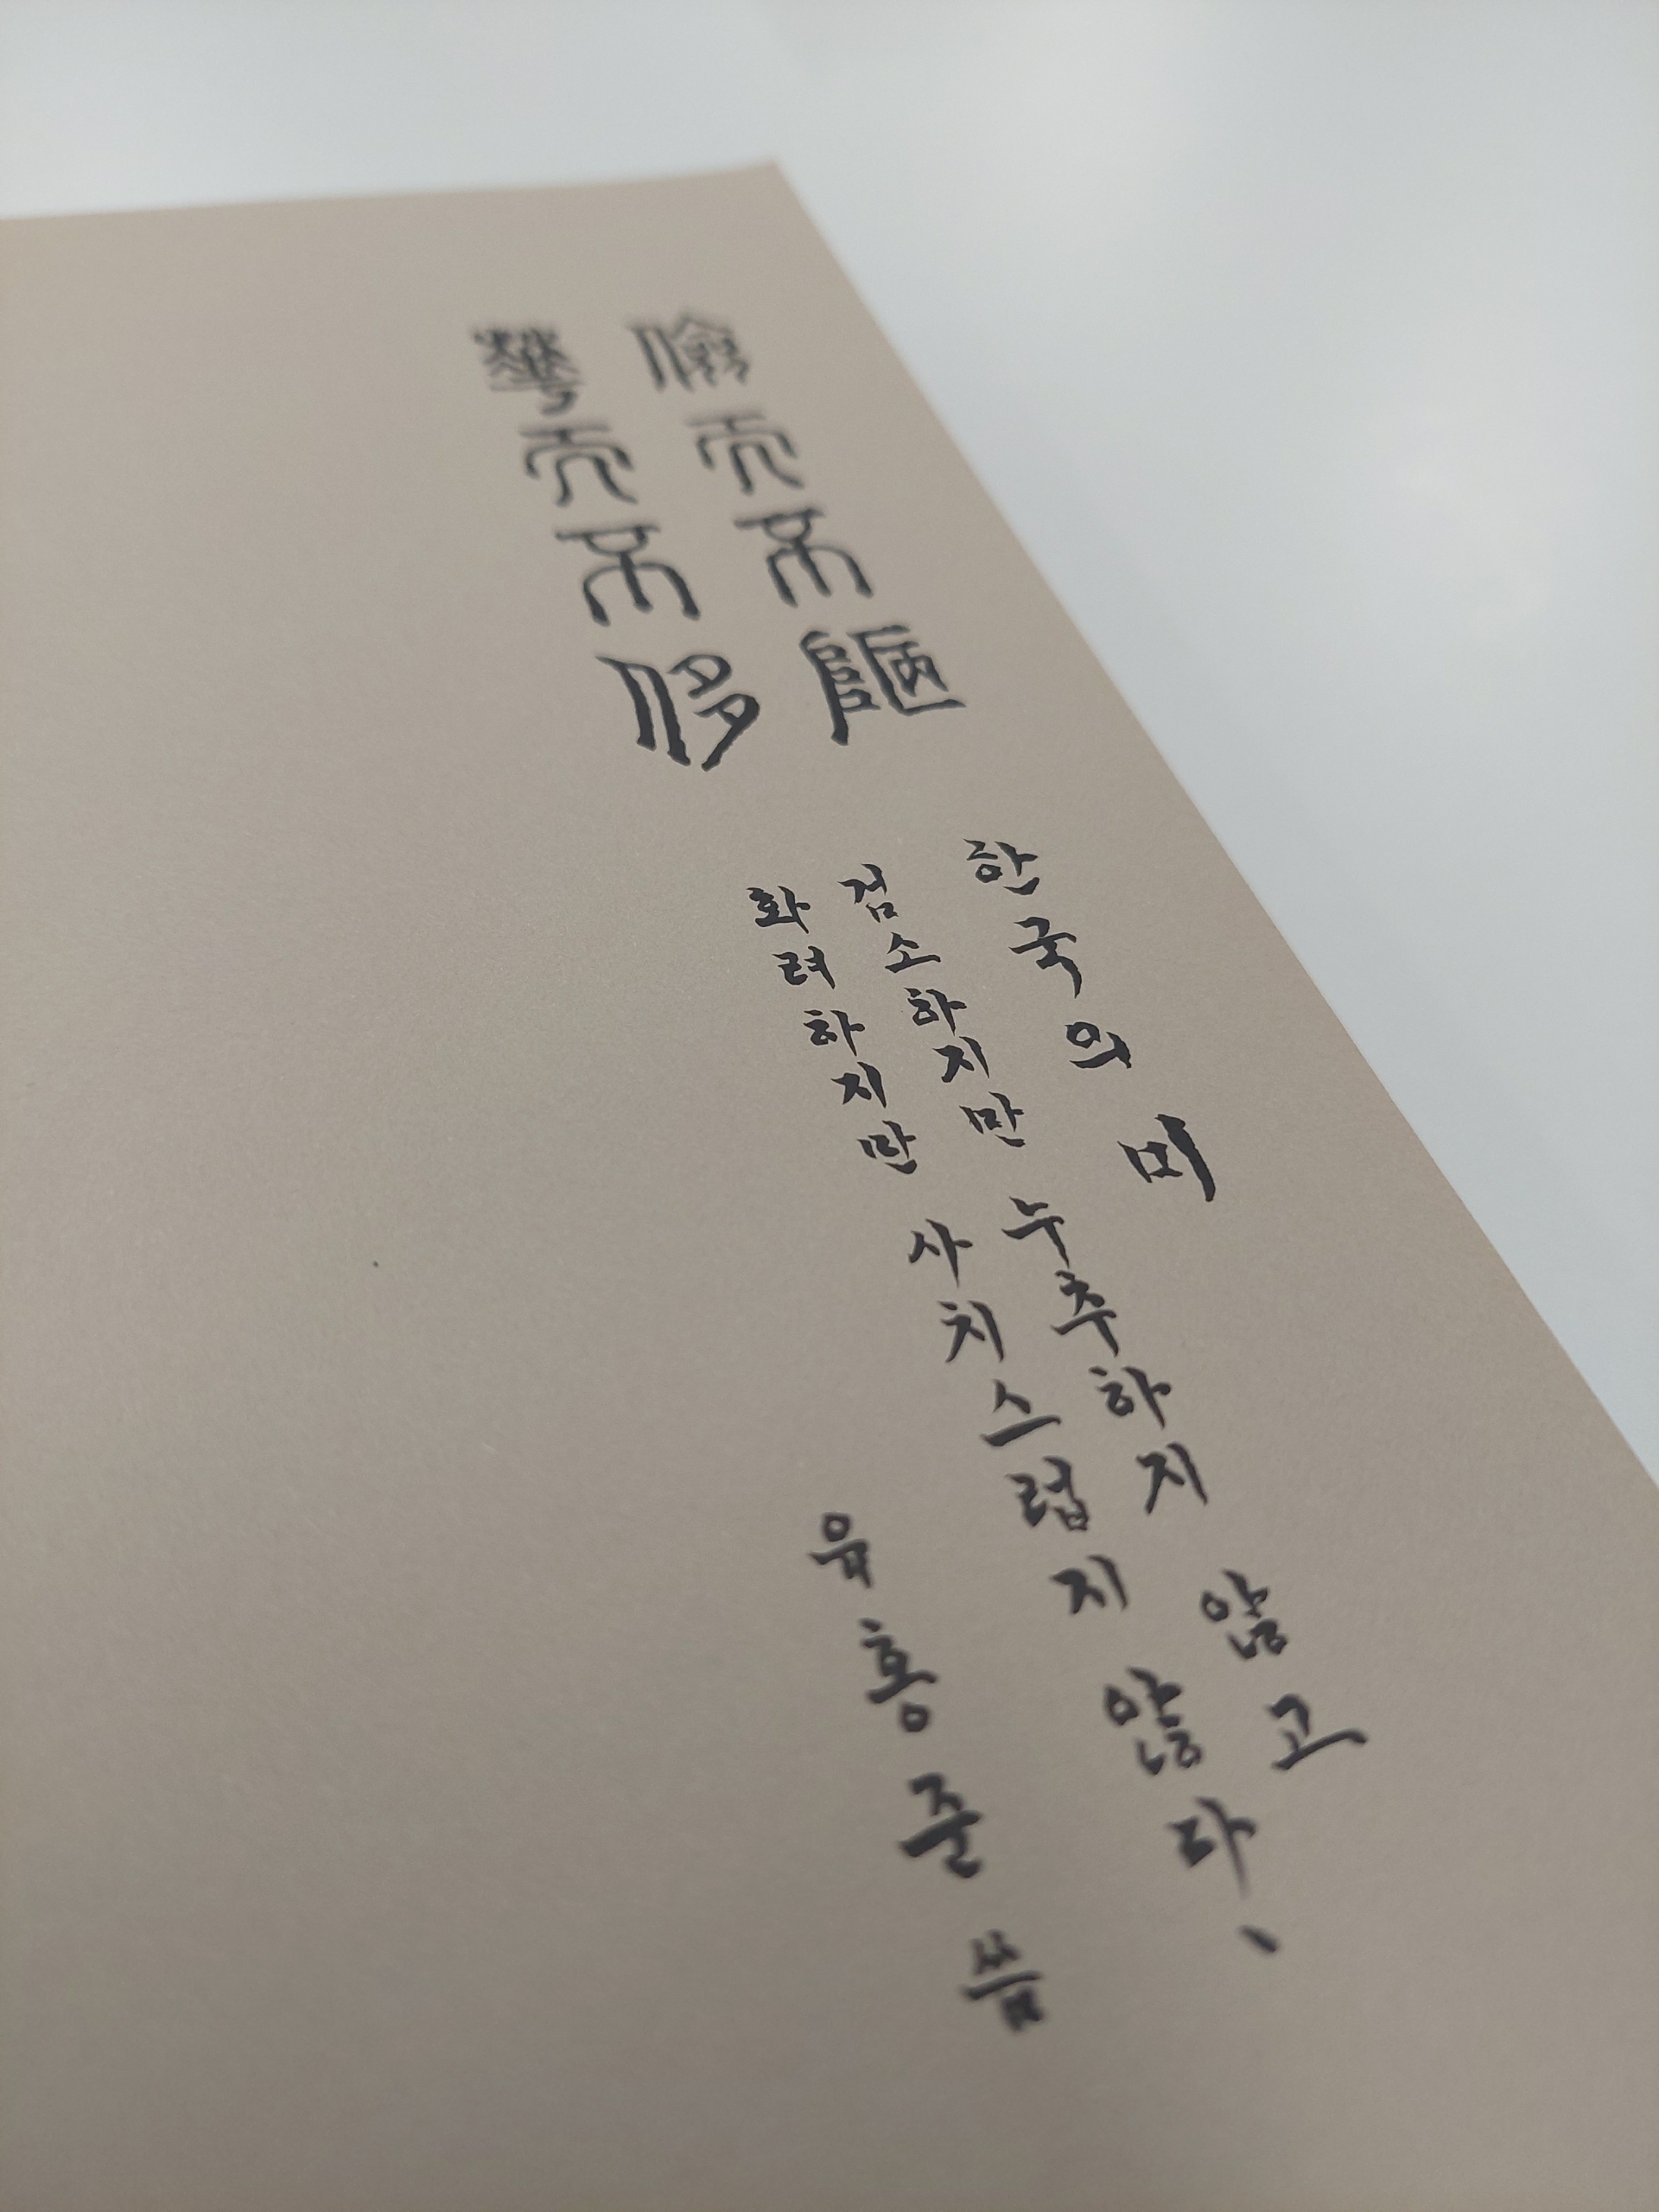 儉而不陋
華而不侈
한국의 미
검소하지만 누추하지 않고
화려하지만 사치스럽지 않다、
유홍준 씀